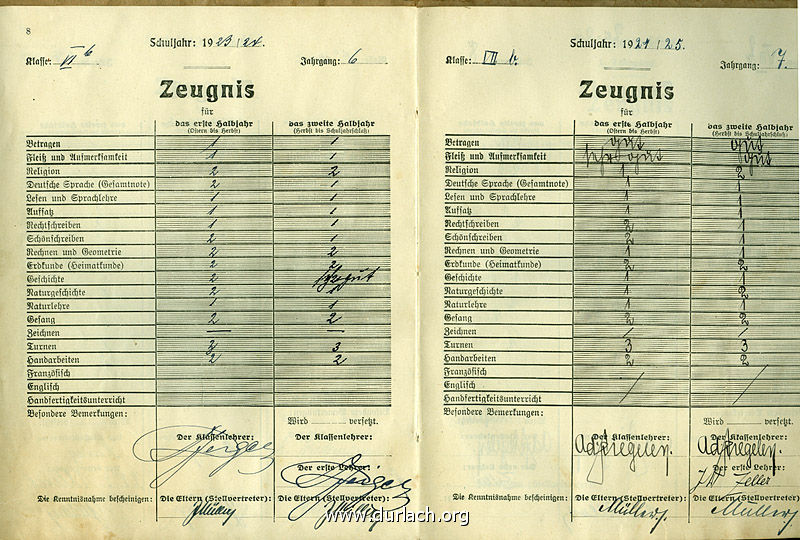 8
Schuljahr: 1923/24.
Klasse: VI b Jahrgang: 6
Zeugnis
für
das erste Halbjahr das zweite Halbjahr
(Ostern bis Herbst) (Herbst bis Schuljahrschluß)
Betragen 1 1
Fleiß und Aufmerksamkeit 1 1
Religion 2 2
Deutsche Sprache (Gesamtnote) 2 1
Lesen und Sprachlehre 1 1
Aufsatz 1 1
Rechtschreiben 1 1
Schönschreiben 2 1
Rechnen und Geometrie 2 2
Erdkunde (Heimatkunde) 2 2
Geschichte 2 gut
Naturgeschichte 2 1
Naturlehre 1 1
Gesang 2 2
Zeichnen — —
Turnen 2 3
Handarbeiten 2 2
Französisch
Englisch
Handfertigkeitsunterricht
Besondere Bemerkungen:
Wird versetzt.
Der Klassenlehrer: Der Klassenlehrer:
Der erste Lehrer:
Die Kenntnisnahme bescheinigen: Die Eltern (Stellvertreter): Die Eltern (Stellvertreter):
Schuljahr: 1924/25.
Klasse: VII b. Jahrgang: 7.
Zeugnis
für
das erste Halbjahr das zweite Halbjahr
(Ostern bis Herbst) (Herbst bis Schuljahrschluß)
Betragen gut gut
Fleiß und Aufmerksamkeit sehr gut gut
Religion 1 2
Deutsche Sprache (Gesamtnote) 1 1
Lesen und Sprachlehre 1 1
Aufsatz 1 1
Rechtschreiben 2 1
Schönschreiben 2 1
Rechnen und Geometrie 1 1
Erdkunde (Heimatkunde) 2 2
Geschichte 1 1
Naturgeschichte 2 2
Naturlehre 1 1
Gesang 2 2
Zeichnen / /
Turnen 3 3
Handarbeiten 2 2
Französisch
Englisch / /
Handfertigkeitsunterricht
Besondere Bemerkungen:
Wird versetzt.
Der Klassenlehrer: Der Klassenlehrer:
Der erste Lehrer:
Zeller
Die Kenntnisnahme bescheinigen: Die Eltern (Stellvertreter): Die Eltern (Stellvertreter):
Müller Müller
www.durlach.org